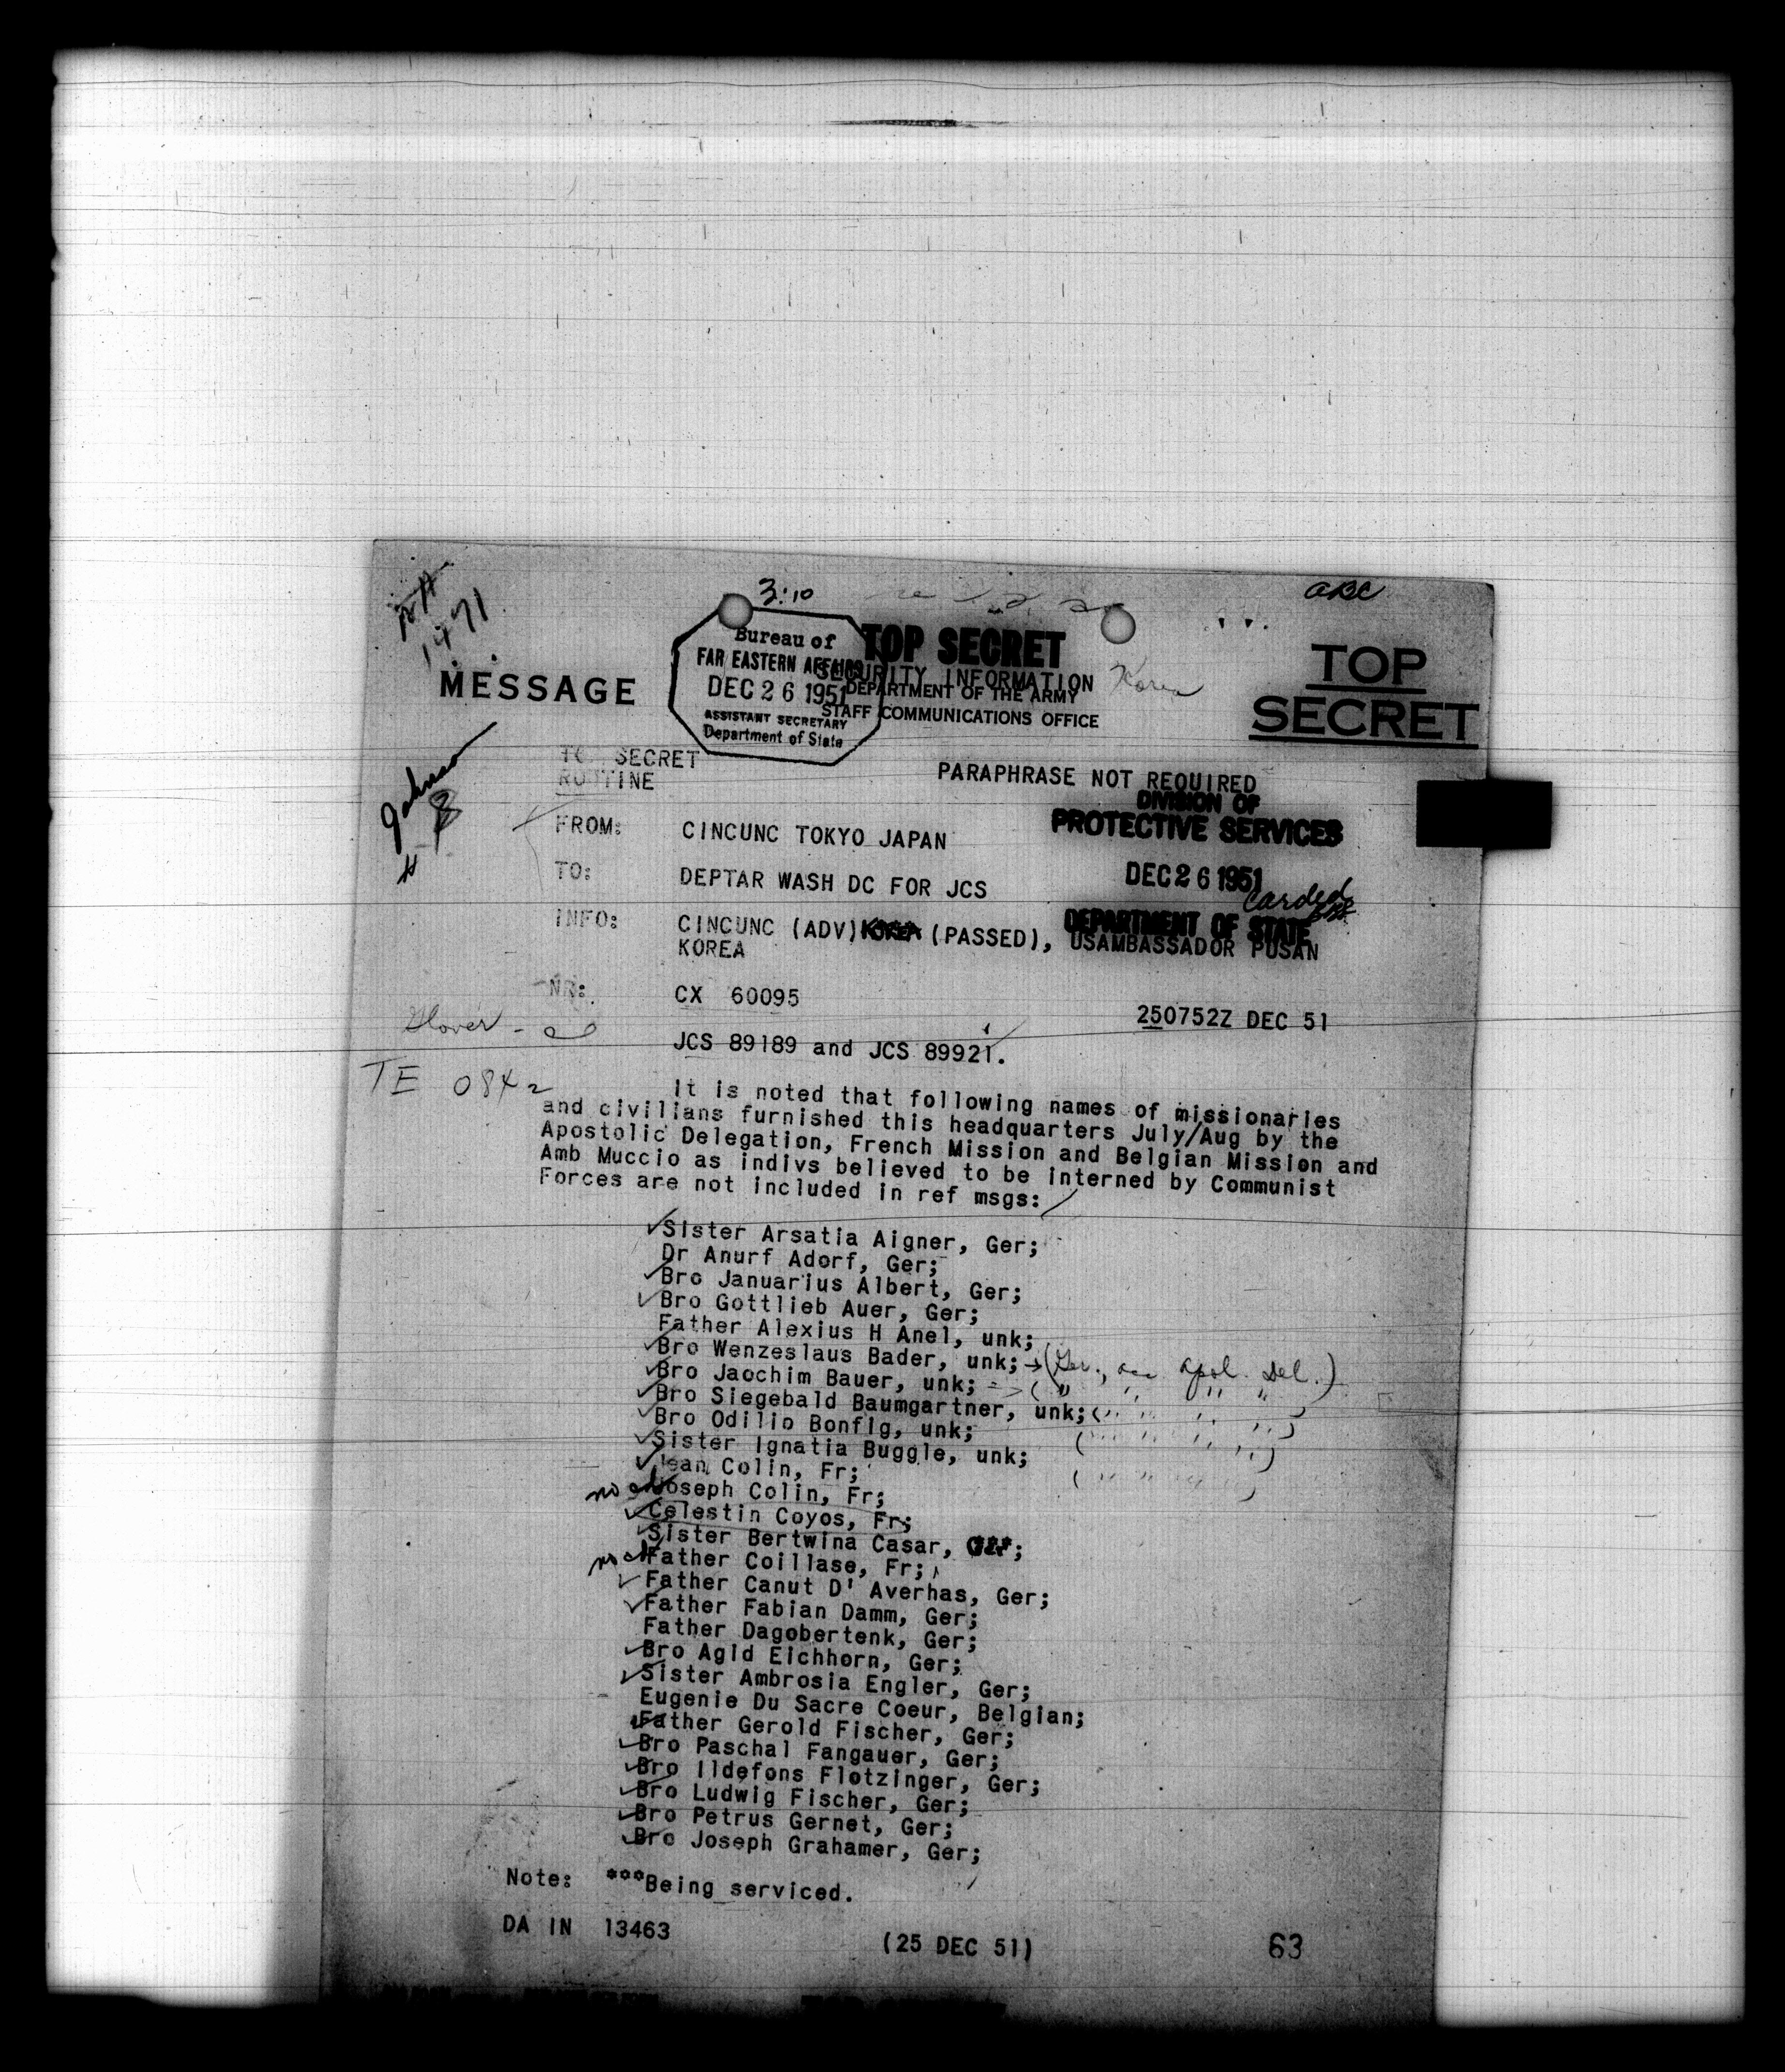 3:10
ABC
1471
Bureau of
FAR EASTERN AFFAIRS
DEC 26 1951
ASSISTANT SECRETARY
Department of State
TOP SECRET
SECURITY INFORMATION
DEPARTMENT OF THE ARMY
STAFF COMMUNICATIONS OFFICE
Korea
MESSAGE
TOP
SECRET
Johnson
TOP SECRET
ROUTINE
PARAPHRASE NOT REQUIRED
DIVISION OF
PROTECTIVE SERVICES
DEC 26 1951
Carded
DEPARTMENT OF STATE
FROM: CINCUNC TOKYO JAPAN
TO: DEPTAR WASH DC FOR JCS
INFO: CINCUNC (ADV) KOREA (PASSED), USAMBASSADOR PUSAN
KOREA
NR: CX 60095
250752Z DEC 51
Glover -
JCS 89189 and JCS 89921.
TE 0842
It is noted that following names of missionaries
and civilians furnished this headquarters July/Aug by the
Apostolic Delegation, French Mission and Belgian Mission and
Amb Muccio as indivs believed to be interned by Communist
Forces are not included in ref msgs:
Sister Arsatia Aigner, Ger;
Dr Anurf Adorf, Ger;
Bro Januarius Albert, Ger;
Bro Gottlieb Auer, Ger;
Father Alexius H Anel, unk;
Bro Wenzeslaus Bader, unk; → (Ger., acc Apol. Del.)
Bro Jaochim Bauer, unk; → ( " " " "
Bro Siegebald Baumgartner, unk; ( " " " " )
Bro Odilio Bonfig, unk; ( " " " " )
Sister Ignatia Buggle, unk; ( " " " " )
Jean Colin, Fr;
no Joseph Colin, Fr;
Celestin Coyos, Fr;
Sister Bertwina Casar, Ger;
no Father Coillase, Fr;
Father Canut D' Averhas, Ger;
Father Fabian Damm, Ger;
Father Dagobertenk, Ger;
Bro Agid Eichhorn, Ger;
Sister Ambrosia Engler, Ger;
Eugenie Du Sacre Coeur, Belgian;
Father Gerold Fischer, Ger;
Bro Paschal Fangauer, Ger;
Bro Ildefons Flotzinger, Ger;
Bro Ludwig Fischer, Ger;
Bro Petrus Gernet, Ger;
Bro Joseph Grahamer, Ger;
Note: ***Being serviced.
DA IN 13463 (25 DEC 51) 63